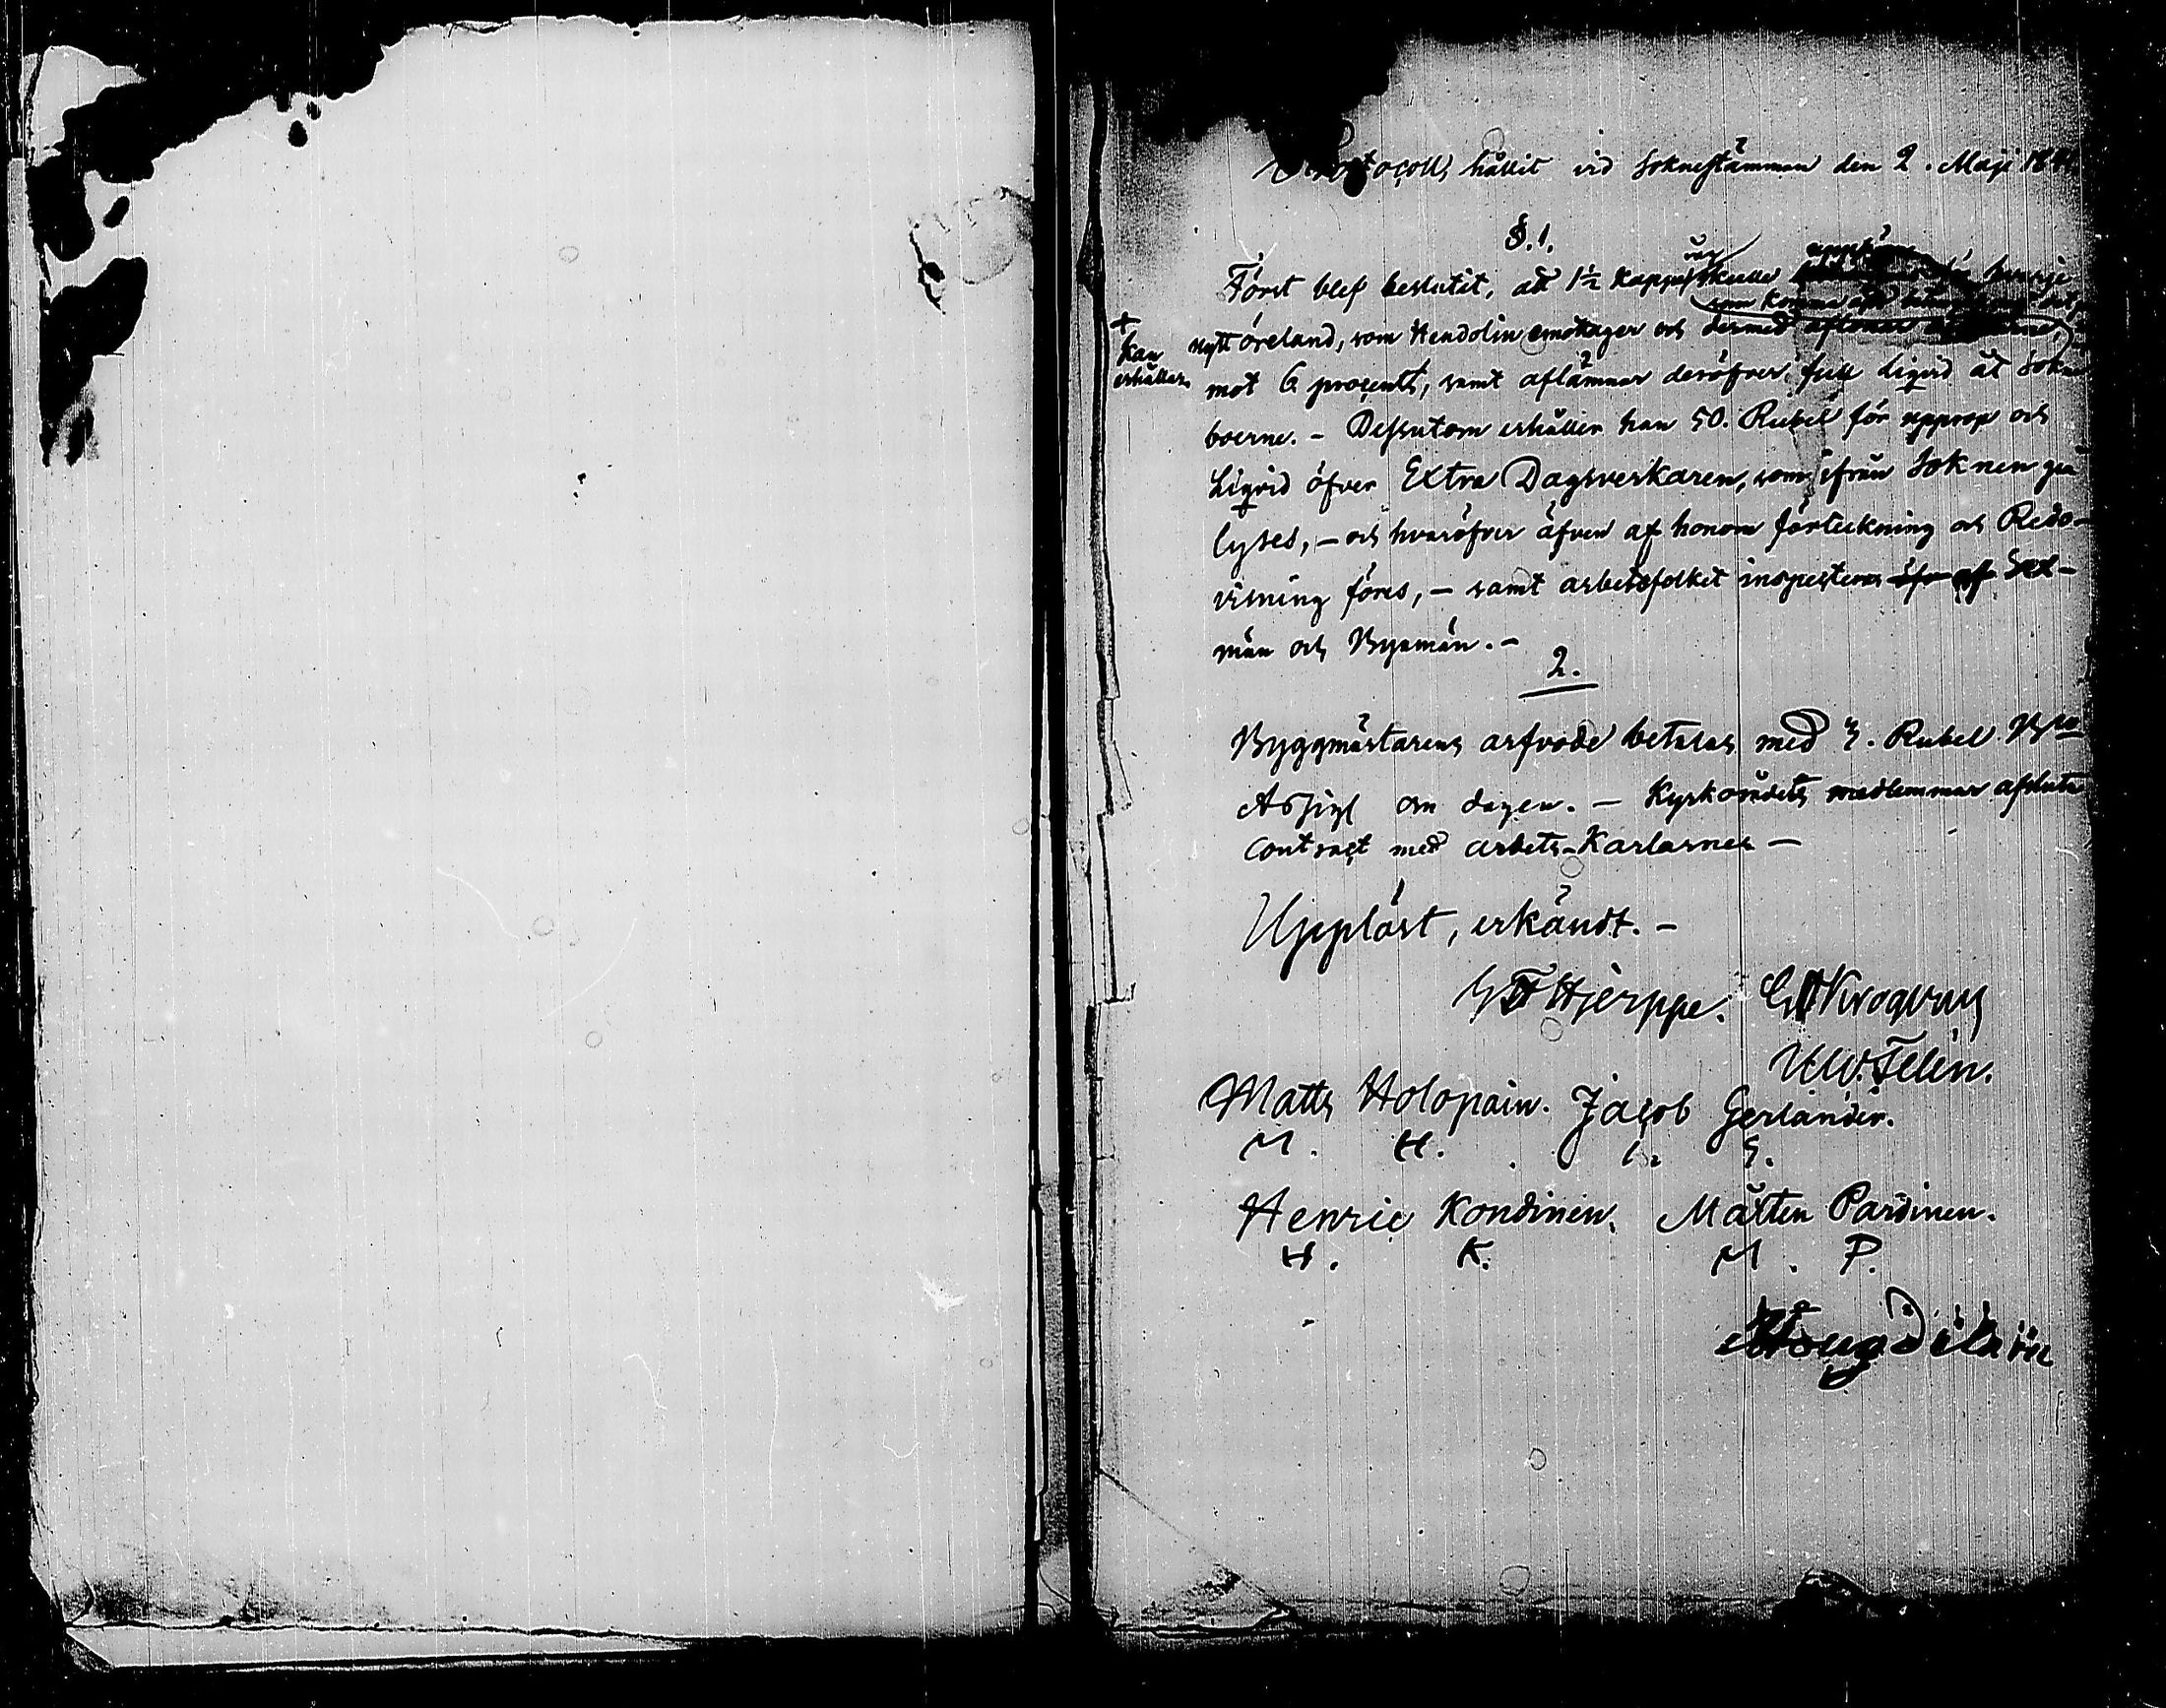 Protocoll, hållit vid Soknestämman den 2. Maji
§. 1.
Först blef beslutit, att 1½ kappe
nytt öreland, som Hendolin emottager och dermed
+ kan
erhållas
mot 6 procent, samt aflämnar deröfver full liqvid åt Sokne
boerne. – Dessutom erhåller han 50. Rubel för upprop och
Liqvid öfver Extra Dagsverkaren, som ifrån Soknen
lyses, – och hvaröfver äfven af honom förteckning och Redo-
visning föres, – samt arbetsfolket inspecteras af Sex-
män och Byamän. –
2.
Byggmästarens arfvode betalas med 3. Rubel Bco
Assigl om dagen. – Kyrkorådets medlemmar afsluta
Contract med arbets-Karlarnes –
Uppläst, erkändt. –
Hjerppe. Krogerus
U W. Telén.
Matts Holopain. Jacob Gerlander.
M. H. G.
Henric Kondinen. Måtten Pardinen.
H. K. M. P.